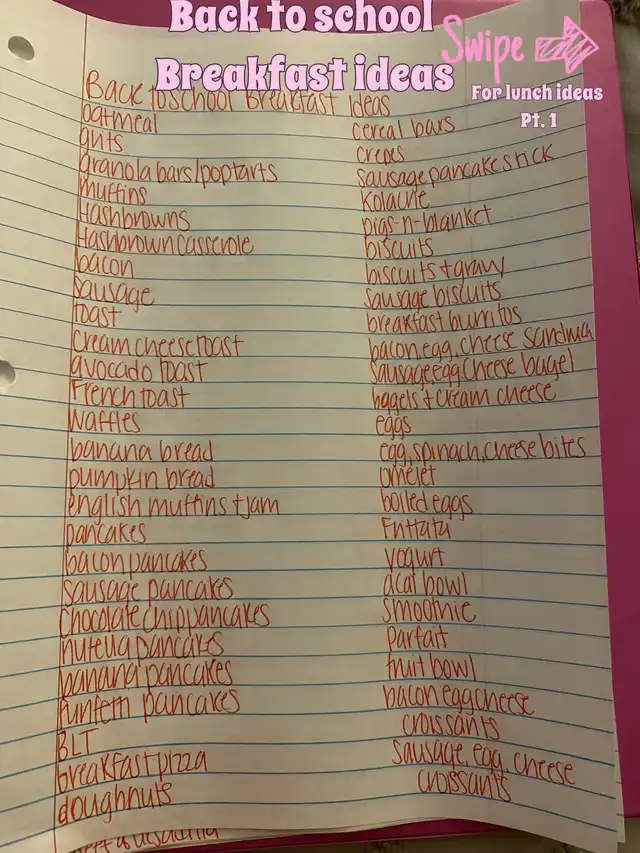 Back to school
Breakfast ideas
Swipe
For lunch ideas
Pt. 1
Back to School Breakfast Ideas
oatmeal
grits
granola bars/poptarts
muffins
Hashbrowns
Hashbrown casserole
bacon
sausage
toast
cream cheese toast
avocado toast
French toast
waffles
banana bread
pumpkin bread
english muffins + jam
pancakes
bacon pancakes
sausage pancakes
chocolate chip pancakes
nutella pancakes
banana pancakes
funfetti pancakes
BLT
breakfast pizza
doughnuts
cereal bars
crepes
sausage pancake stick
Kolache
pigs-n-blanket
biscuits
biscuits + gravy
sausage biscuits
breakfast burritos
bacon, egg, cheese sandwich
sausage, egg, cheese bagel
bagels + cream cheese
eggs
egg, spinach, cheese bites
omelet
boiled eggs
Frittata
yogurt
acai bowl
smoothie
parfait
fruit bowl
bacon egg cheese
croissants
sausage, egg, cheese
croissants